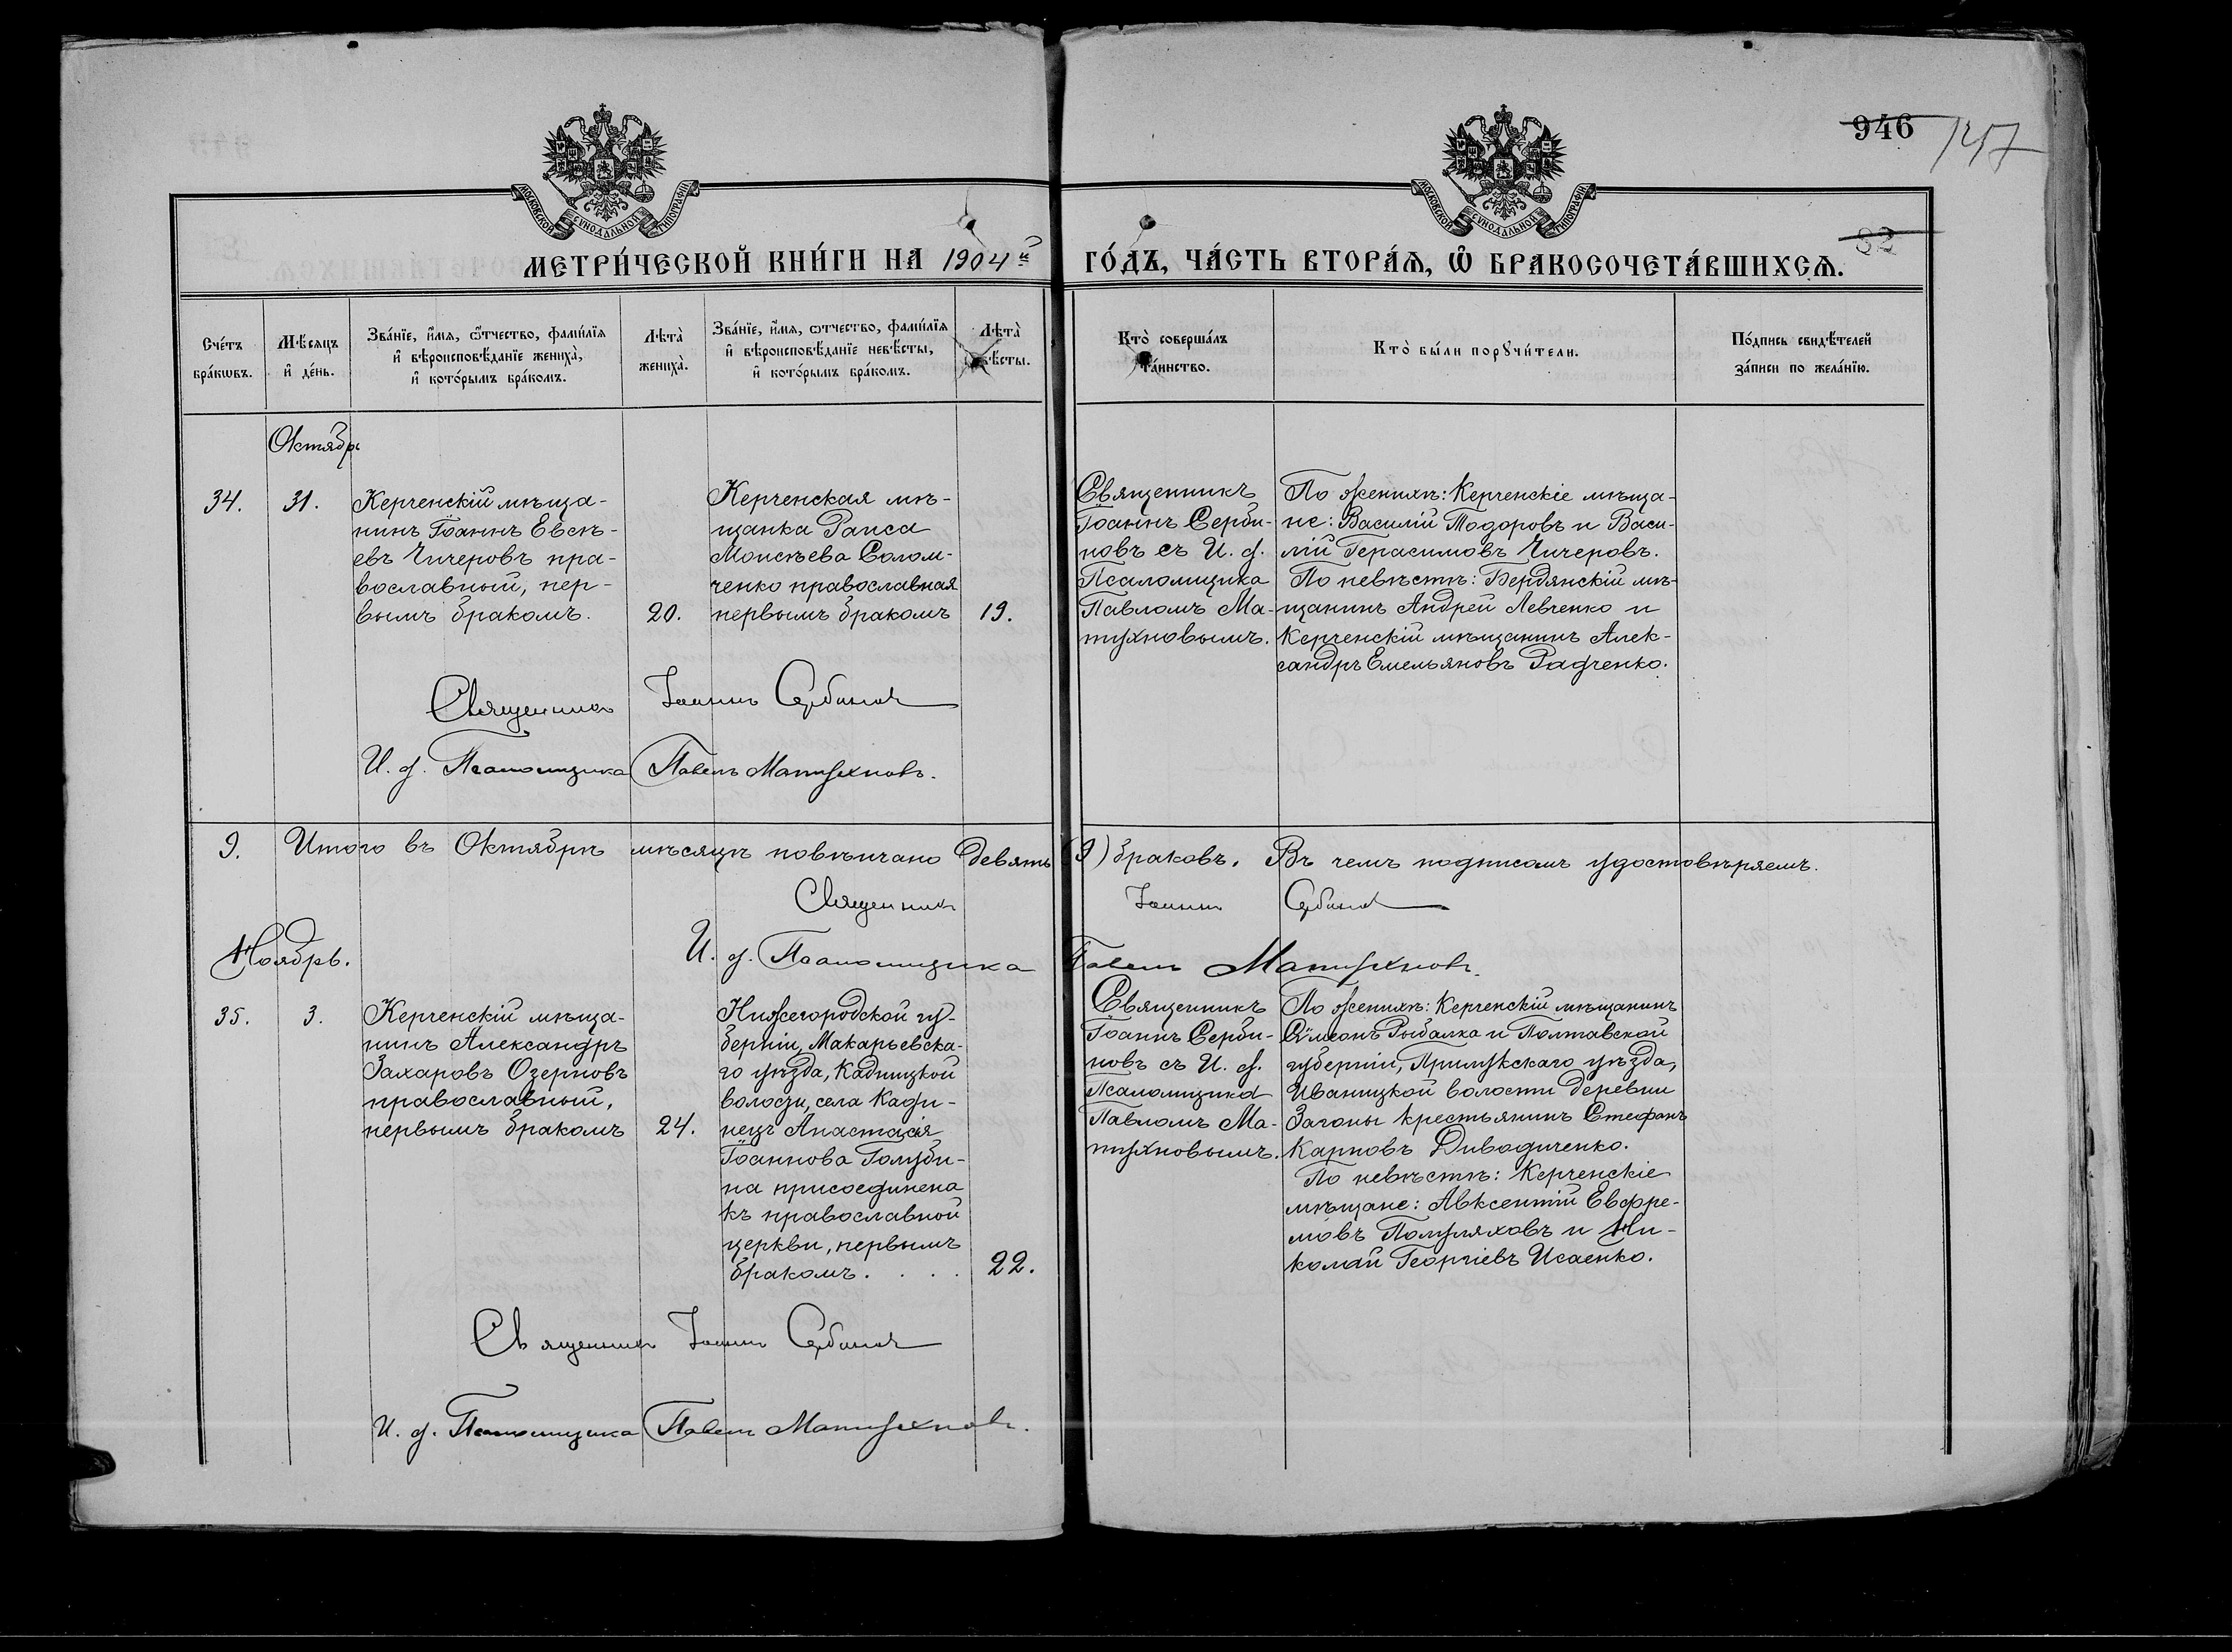 946
МОСКОВСКОЙ СѴНОДАЛЬНОЙ ТИПОГРАФІИ
МОСКОВСКОЙ СѴНОДАЛЬНОЙ ТИПОГРАФІИ
82
МЕТРИ́ЧЕСКОЙ КНИ́ГИ НА 1904й
ГО́ДЪ, ЧА́СТЬ ВТОРА́Ѧ, Ѡ҆ БРАКОСОЧЕТА́ВШИХСѦ.
Сче́тъ
бра́кѡвъ.
Мѣ́сяцъ
и҆ де́нь.
Зва́нїе, и҆́мѧ, ѻ҆́тчество, фами́лїѧ
и҆ вѣроисповѣ́данїе жениха̀,
и҆ кото́рымъ бра́комъ.
Лѣта̀
жениха̀.
Зва́нїе, и҆́мѧ, ѻ҆́тчество, фами́лїѧ
и҆ вѣроисповѣ́данїе невѣ́сты,
и҆ кото́рымъ бра́комъ.
Лѣта̀
невѣ́сты.
Кто̀ соверша́лъ
та́инство.
Кто̀ бы́ли порꙋчи́тели.
По́дпись свидѣ́телей
за́писи по жела́нїю.
Октябрь
34.
31.
Керченскій мѣща-
нинъ Іоаннъ Евсѣ-
евъ Чичеровъ пра-
вославный, пер-
вымъ бракомъ.
20.
Керченская мѣ-
щанка Раиса
Моисѣева Солом-
ченко православная
первымъ бракомъ
19.
Священникъ
Іоаннъ Серби-
новъ съ И. д.
Псаломщика
Павломъ Ма-
тухновымъ.
По женихѣ: Керченскіе мѣща-
не: Василій Тодоровъ и Васи-
лій Герасимовъ Чичеровъ.
По невѣстѣ: Бердянскій мѣ-
щанинъ Андрей Левченко и
Керченскій мѣщанинъ Алек-
сандръ Емельяновъ Радченко.
Священникъ Іоаннъ Сербиновъ
И. д. Псаломщика Павелъ Матухновъ.
9. Итого въ Октябрѣ мѣсяцѣ повѣнчано девять (9) браковъ. Въ чемъ подписомъ удостовѣряемъ.
Священникъ Іоаннъ Сербиновъ
И. д. Псаломщика Павелъ Матухновъ.
Ноябрь.
35.
3.
Керченскій мѣща-
нинъ Александръ
Захаровъ Озерновъ
православный,
первымъ бракомъ
24.
Нижегородской гу-
берніи, Макарьевска-
го уѣзда, Кадницкой
волости, села Кадни-
нецъ Анастасія
Іоаннова Голуби-
на присоединена
къ православной
церкви, первымъ
бракомъ. . . .
22.
Священникъ
Іоаннъ Серби-
новъ съ И. д.
Псаломщика
Павломъ Ма-
тухновымъ.
По женихѣ: Керченскій мѣщанинъ
Сѵмеонъ Рыбалка и Полтавской
губерніи, Прилукскаго уѣзда,
Иваницкой волости деревни
Загоны крестьянинъ Стефанъ
Карповъ Диводиченко.
По невѣстѣ: Керченскіе
мѣщане: Авксентій Евфре-
мовъ Полуляховъ и Ни-
колай Георгіевъ Исаенко.
Священникъ Іоаннъ Сербиновъ
И. д. Псаломщика Павелъ Матухновъ.